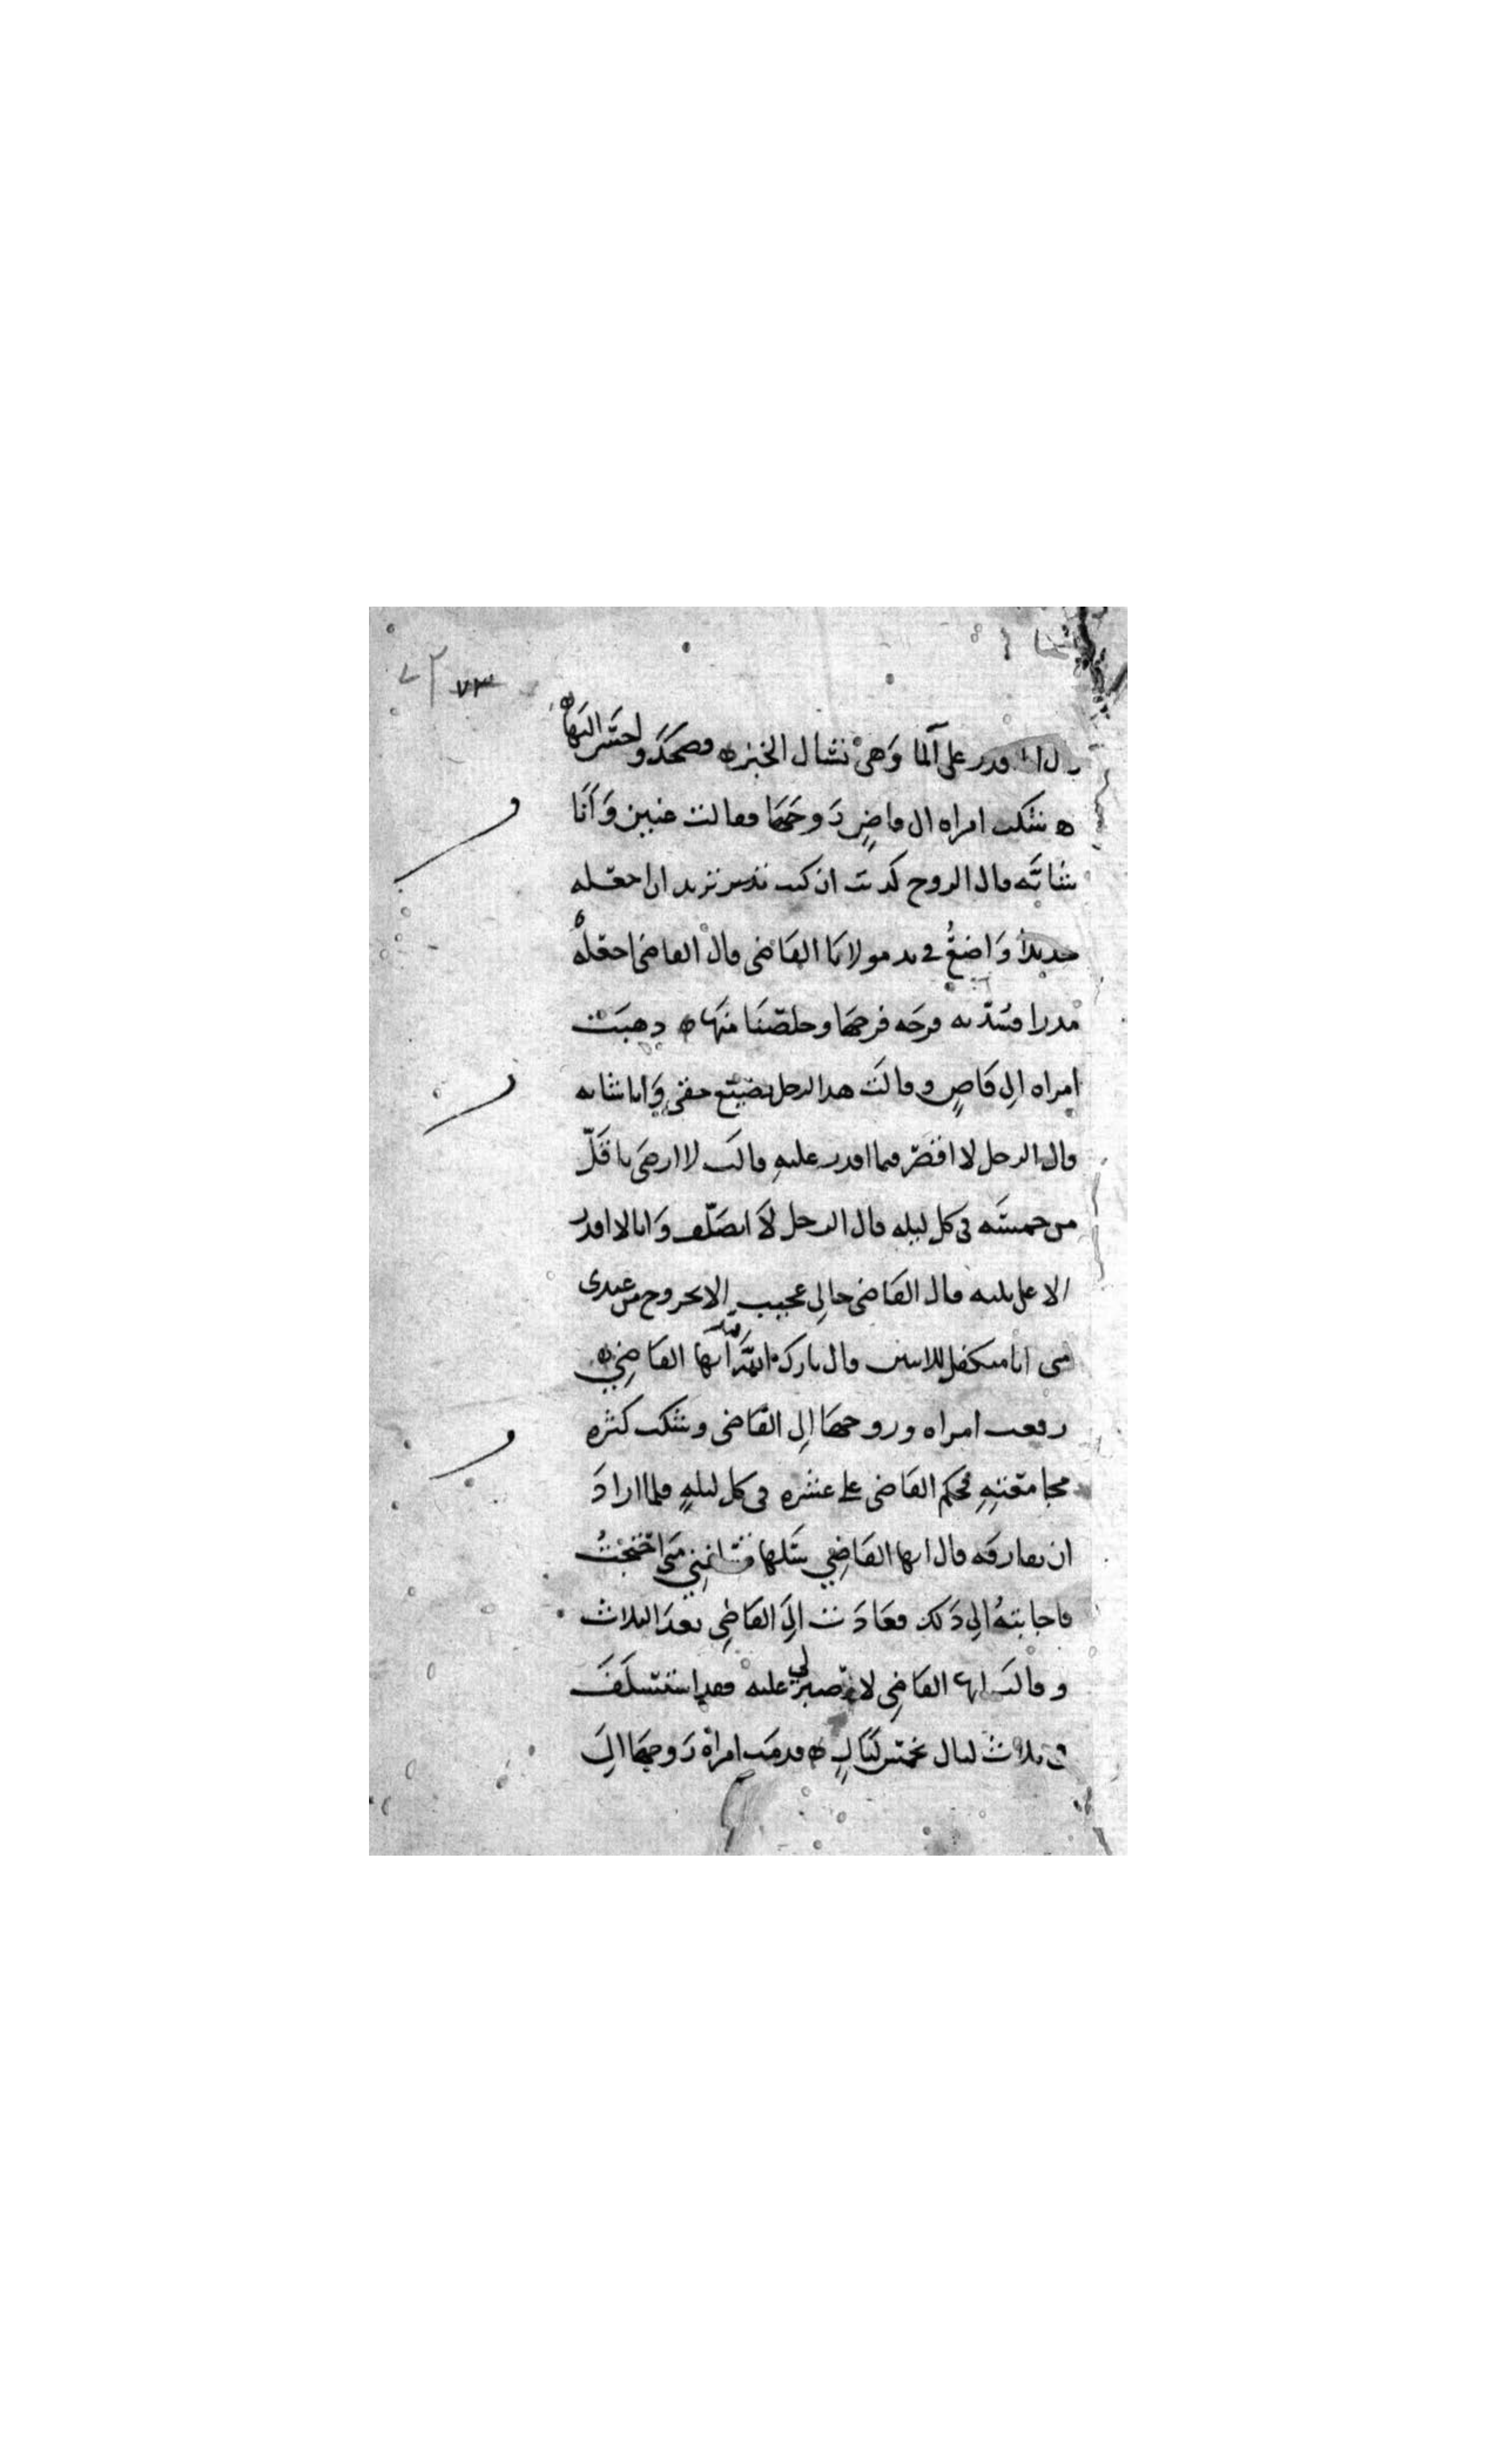 ٧٣
على ألما وهي تشال الخبز فضحك وأحسن إليها
شكت امراة الى قاض زوجها فقالت عنين وأنا
شابة قال الزوج كذبت ان كنت تريد ان اجعله
وأضعُ في يد مولانا القاضي قال القاضي اجعله
فرجها وخلصنا منها ذهبت
امراة الى قاضٍ وقالت هذا الرجل يضيّع حقي وانا شابه
قال الرجل لا اقصّر فيما اقدر عليه قالت لا ارضى باقلّ
من خمسة في كل ليلة قال الرجل لا اتصلّف وانا لا اقدر
الا على ثلثة قال القاضي حالي عجيب لا يخرج من عندي
شي انا متكفل للاثنين قال بارك الله أيها القاضي
رفعت امراة زوجها إلى القاضي وشكت كثرة
مجامعته فحكم القاضي على عشرة في كل ليلةٍ فلما اراد
ان يفارقه قال ايها القاضي سلها متى احتجتُ
فاجابته الى ذلك فعادت الى القاضي بعد الثلاث
وقالت ايها القاضي لا صبر لي عليه فقد استسلف
في ثلاث ليال خمس ليالٍ قدمت امرأة زوجها الى